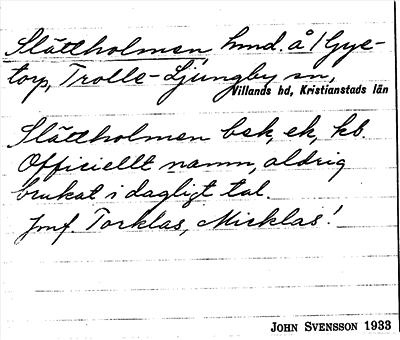 Slättholmen, hmd. å 1 Gye-
torp, Trolle-Ljungby sn,
Villands hd, Kristianstads län
Slättholmen bek, ek, kb.
Officiellt namn, aldrig
brukat i dagligt tal.
Jmf. Torklas, Micklas!
JOHN SVENSSON 1933